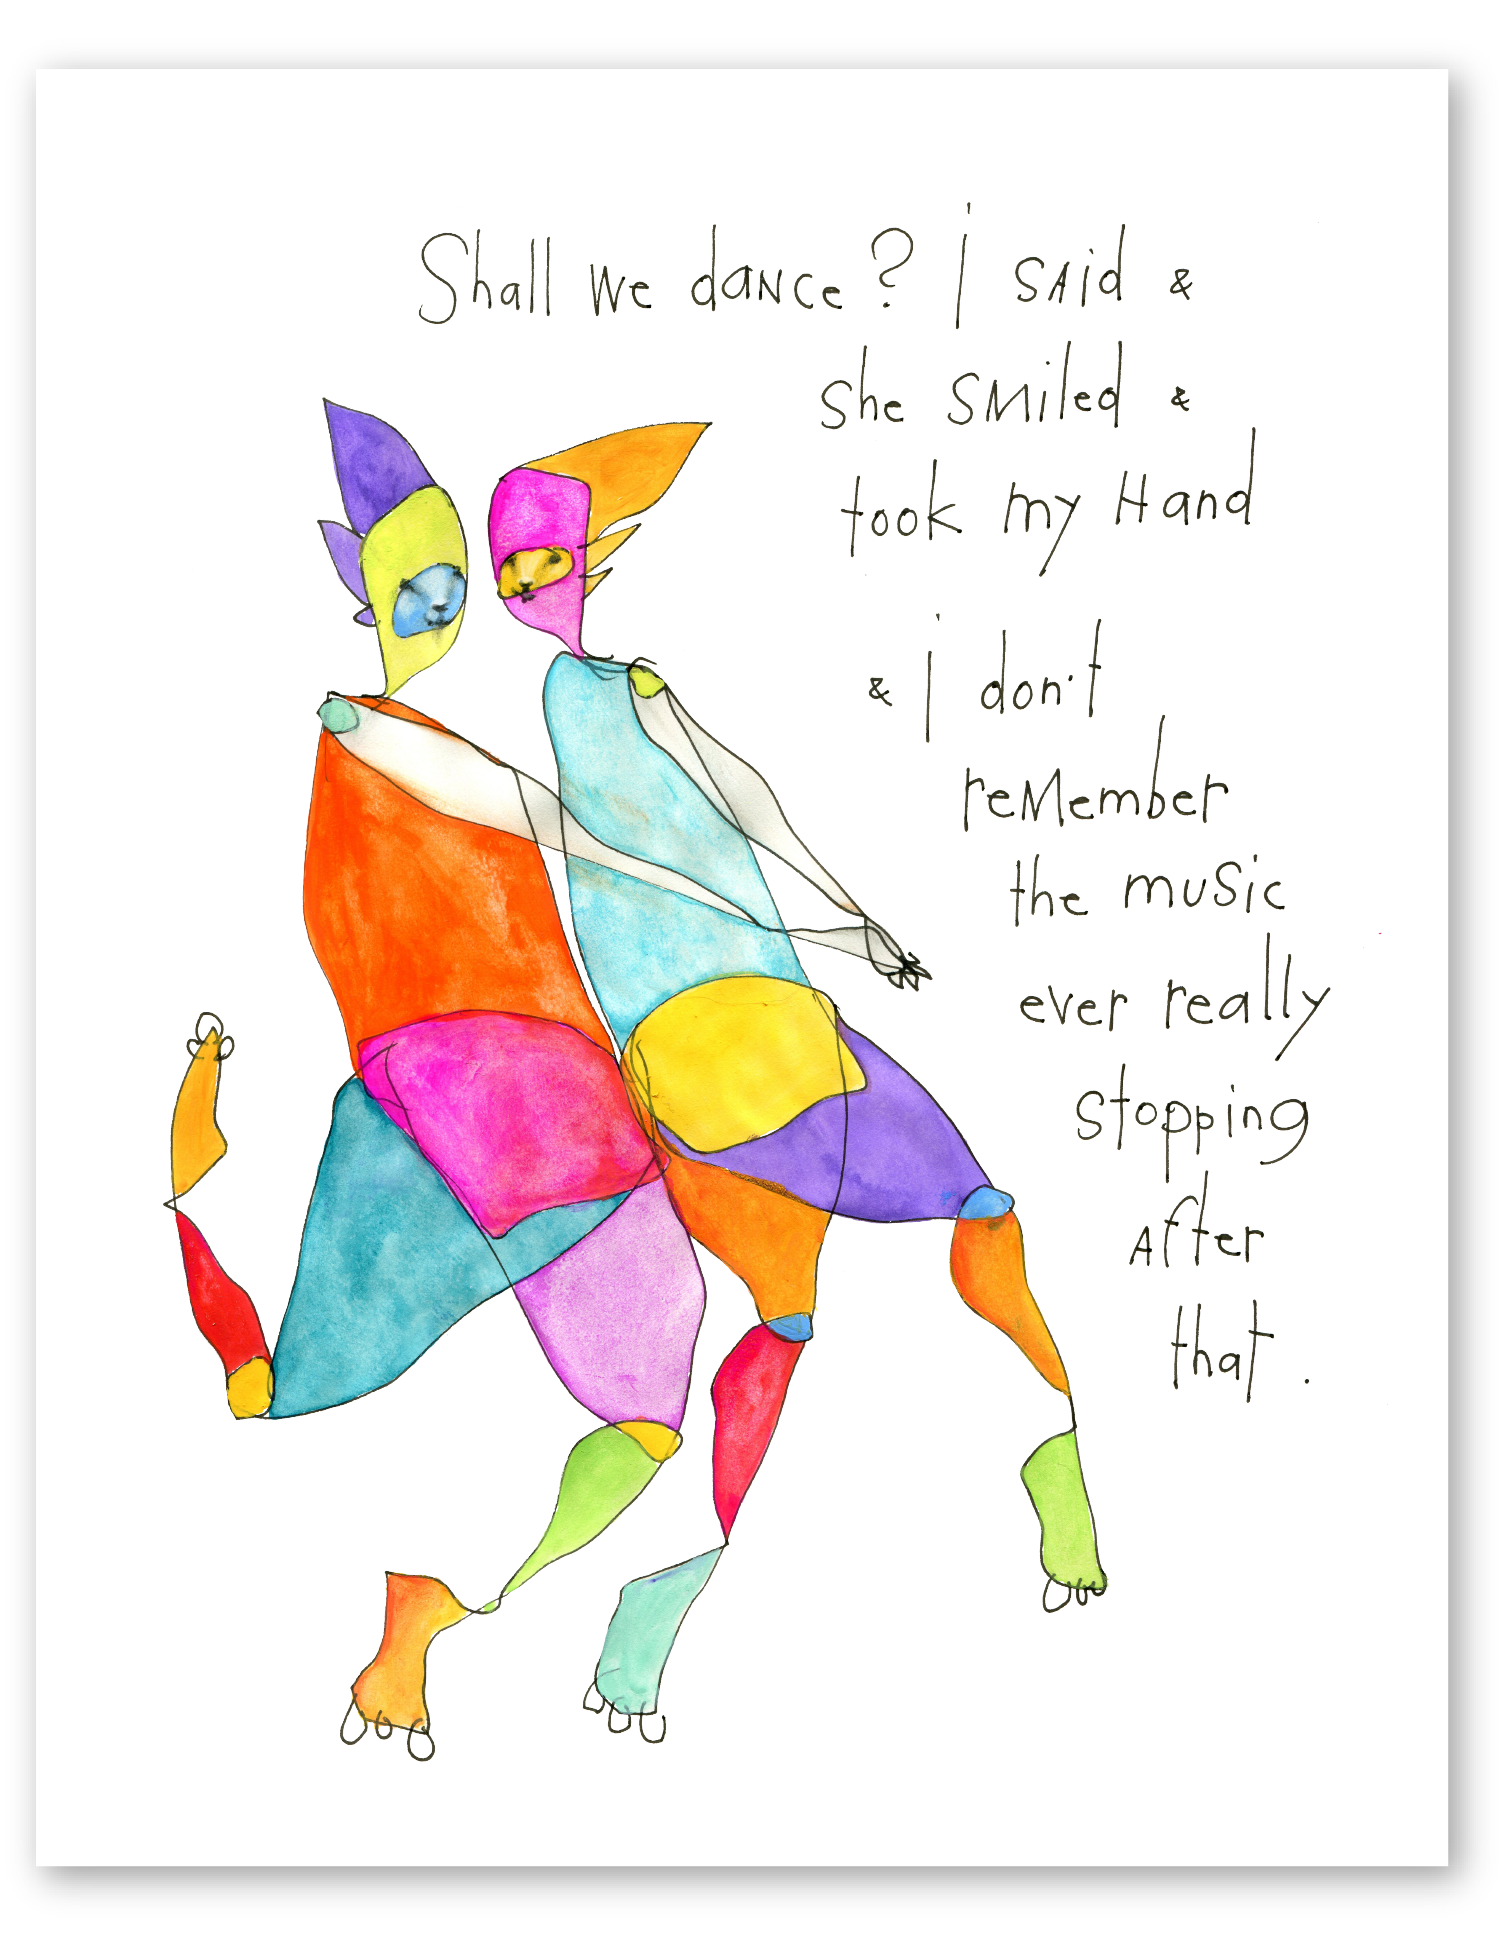 Shall we dance? i said &
she smiled &
took my Hand
& i don't
remember
the music
ever really
stopping
after
that.